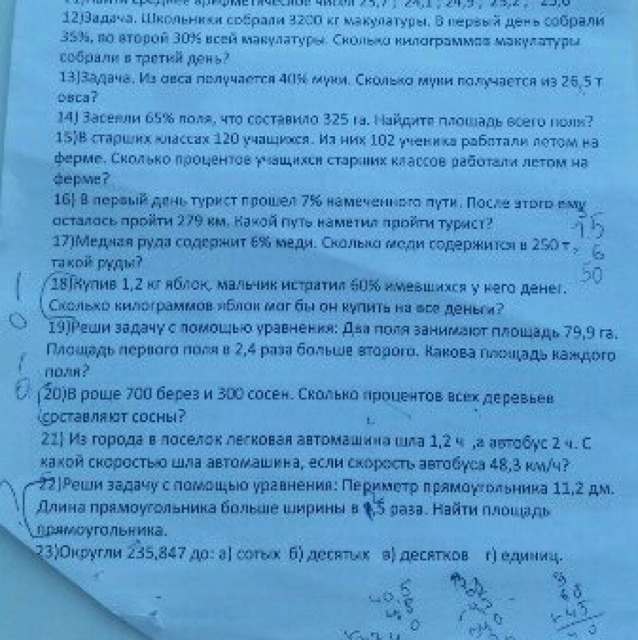 12)Задача. Школьники собрали 3200 кг макулатуры. В первый день собрали
35%, во второй 30% всей макулатуры. Сколько килограммов макулатуры
собрали в третий день?
13)Задача. Из овса получается 40% муки. Сколько муки получается из 26,5 т
овса?
14) Засеяли 65% поля, что составило 325 га. Найдите площадь всего поля?
15)В старших классах 120 учащихся. Из них 102 ученика работали летом на
ферме. Сколько процентов учащихся старших классов работали летом на
ферме?
16) В первый день турист прошел 7% намеченного пути. После этого ему
осталось пройти 279 км. Какой путь наметил пройти турист?
17)Медная руда содержит 6% меди. Сколько меди содержится в 250 т
такой руды?
18)Купив 1,2 кг яблок, мальчик истратил 60% имевшихся у него денег.
Сколько килограммов яблок мог бы он купить на все деньги?
19)Реши задачу с помощью уравнения: Два поля занимают площадь 79,9 га.
Площадь первого поля в 2,4 раза больше второго. Какова площадь каждого
поля?
20)В роще 700 берез и 300 сосен. Сколько процентов всех деревьев
составляют сосны?
21) Из города в поселок легковая автомашина шла 1,2 ч ,а автобус 2 ч. С
какой скоростью шла автомашина, если скорость автобуса 48,3 км/ч?
22)Реши задачу с помощью уравнения: Периметр прямоугольника 11,2 дм.
Длина прямоугольника больше ширины в раза. Найти площадь
прямоугольника.
23)Округли 235,847 до: а) сотых б) десятых в) десятков г) единиц.